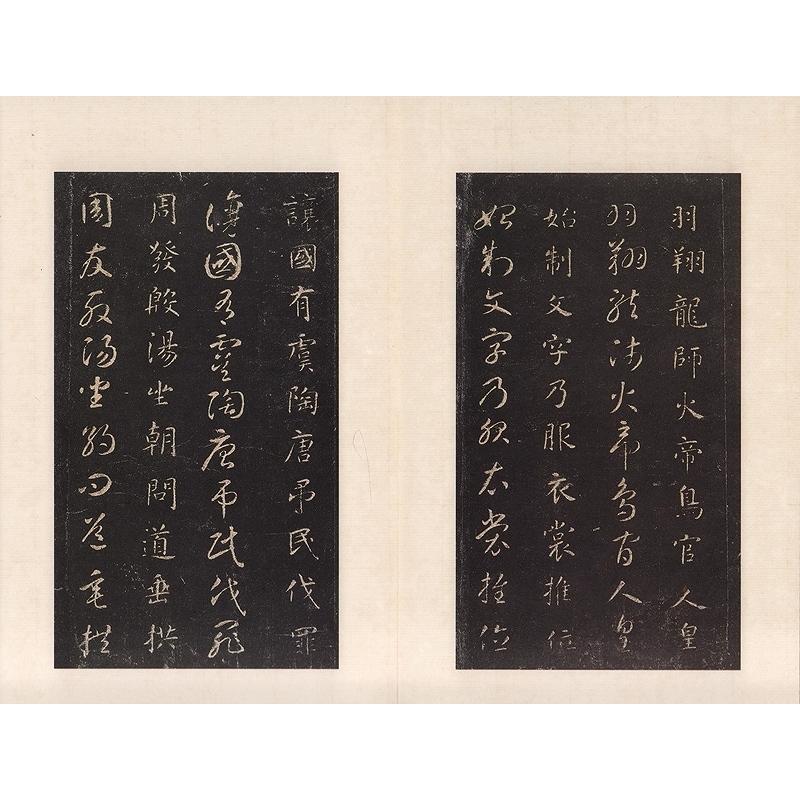 羽翔龍師火帝鳥官人皇
羽翔龍師火帝鳥官人皇
始制文字乃服衣裳推位
始制文字乃服衣裳推位
讓國有虞陶唐弔民伐罪
讓國有虞陶唐弔民伐罪
周發殷湯坐朝問道垂拱
周發殷湯坐朝問道垂拱